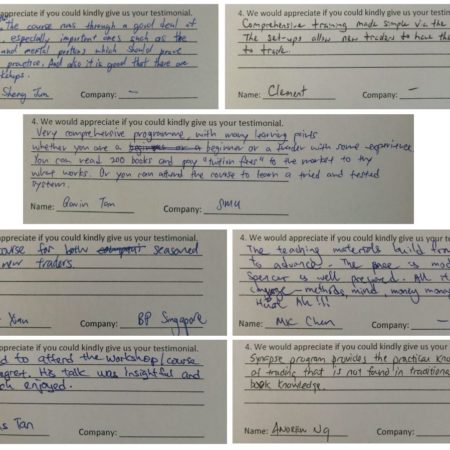 appreciate if you could kindly give us your testimonial.
The course runs through a good deal of
, especially important ones such as the
and mental portions which should prove
practice. And also it is good that there are
kshops.
Sheng Jun Company: —
4. We would appreciate if you could kindly give us your te
Comprehensive training made simple via the
The set-ups allow new traders to have the
to trade.
Name: Clement Company: —
4. We would appreciate if you could kindly give us your testimonial.
Very comprehensive programme, with many learning points
whether you are a beginner or a trader with some experience.
You can read 200 books and pay "tuition fees" to the market to try
what works. Or you can attend the course to learn a tried and tested
system.
Name: Gavin Tan Company: SMU
ppreciate if you could kindly give us your testimonial.
ourse for both seasoned
new traders.
Company: BP Singapore
4. We would appreciate if you could kindly give us your te
The teaching materials build from
to advance. The pace is mod
Spencer is well prepared. All th
methods, mind, money mana
Name: MK Chen Company: —
ppreciate if you could kindly give us your testimonial.
d to attend the workshop/course
egret. His talk was insightful and
ch enjoyed.
s Tan Company:
4. We would appreciate if you could kindly give us your te
Synapse program provides the practical know
of trading that is not found in traditiona
book knowledge.
Name: ANDREW NG Company: